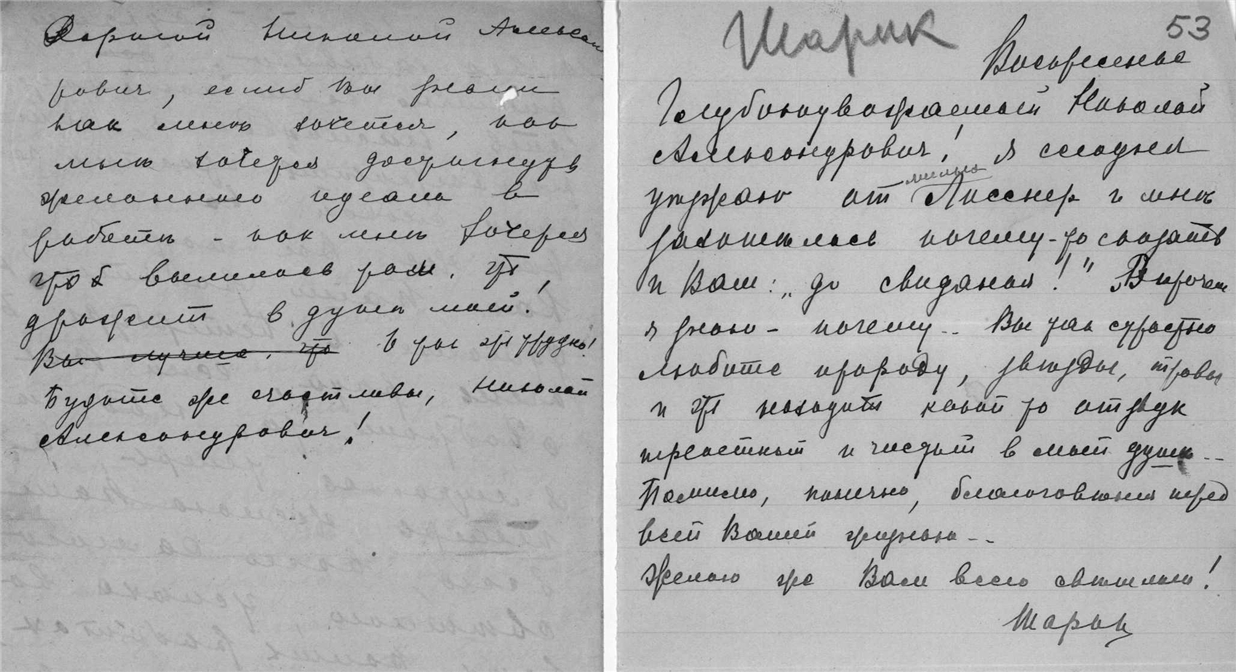 Дорогой Николай Алексан
дрович, еслиб Вы знали
как мнѣ хочется, как
мнѣ хочется достигнуть
желанного идеала в
работѣ - как мнѣ хочется
чтоб вылилось все, что
дрожит в душѣ моей!
Вы лучше, что В это трудно!
Будьте же счастливы, Николай
Александрович!
Шарик
53
Воскресенье
Глубокоуважаемый Николай
Александрович! Я сегодня
уѣзжаю от милых Лисснер и мнѣ
захотѣлось почему-то сказать
и Вам: „до свиданья!" Впрочем
я знаю - почему.. Вы так страстно
любите природу, звѣзды, травы
и это находит какой то отзвук
трепетный и чистый в моей душѣ..
Помимо, конечно, благоговѣния перед
всей Вашей жизнью..
Желаю же Вам всего свѣтлаго!
Шарик